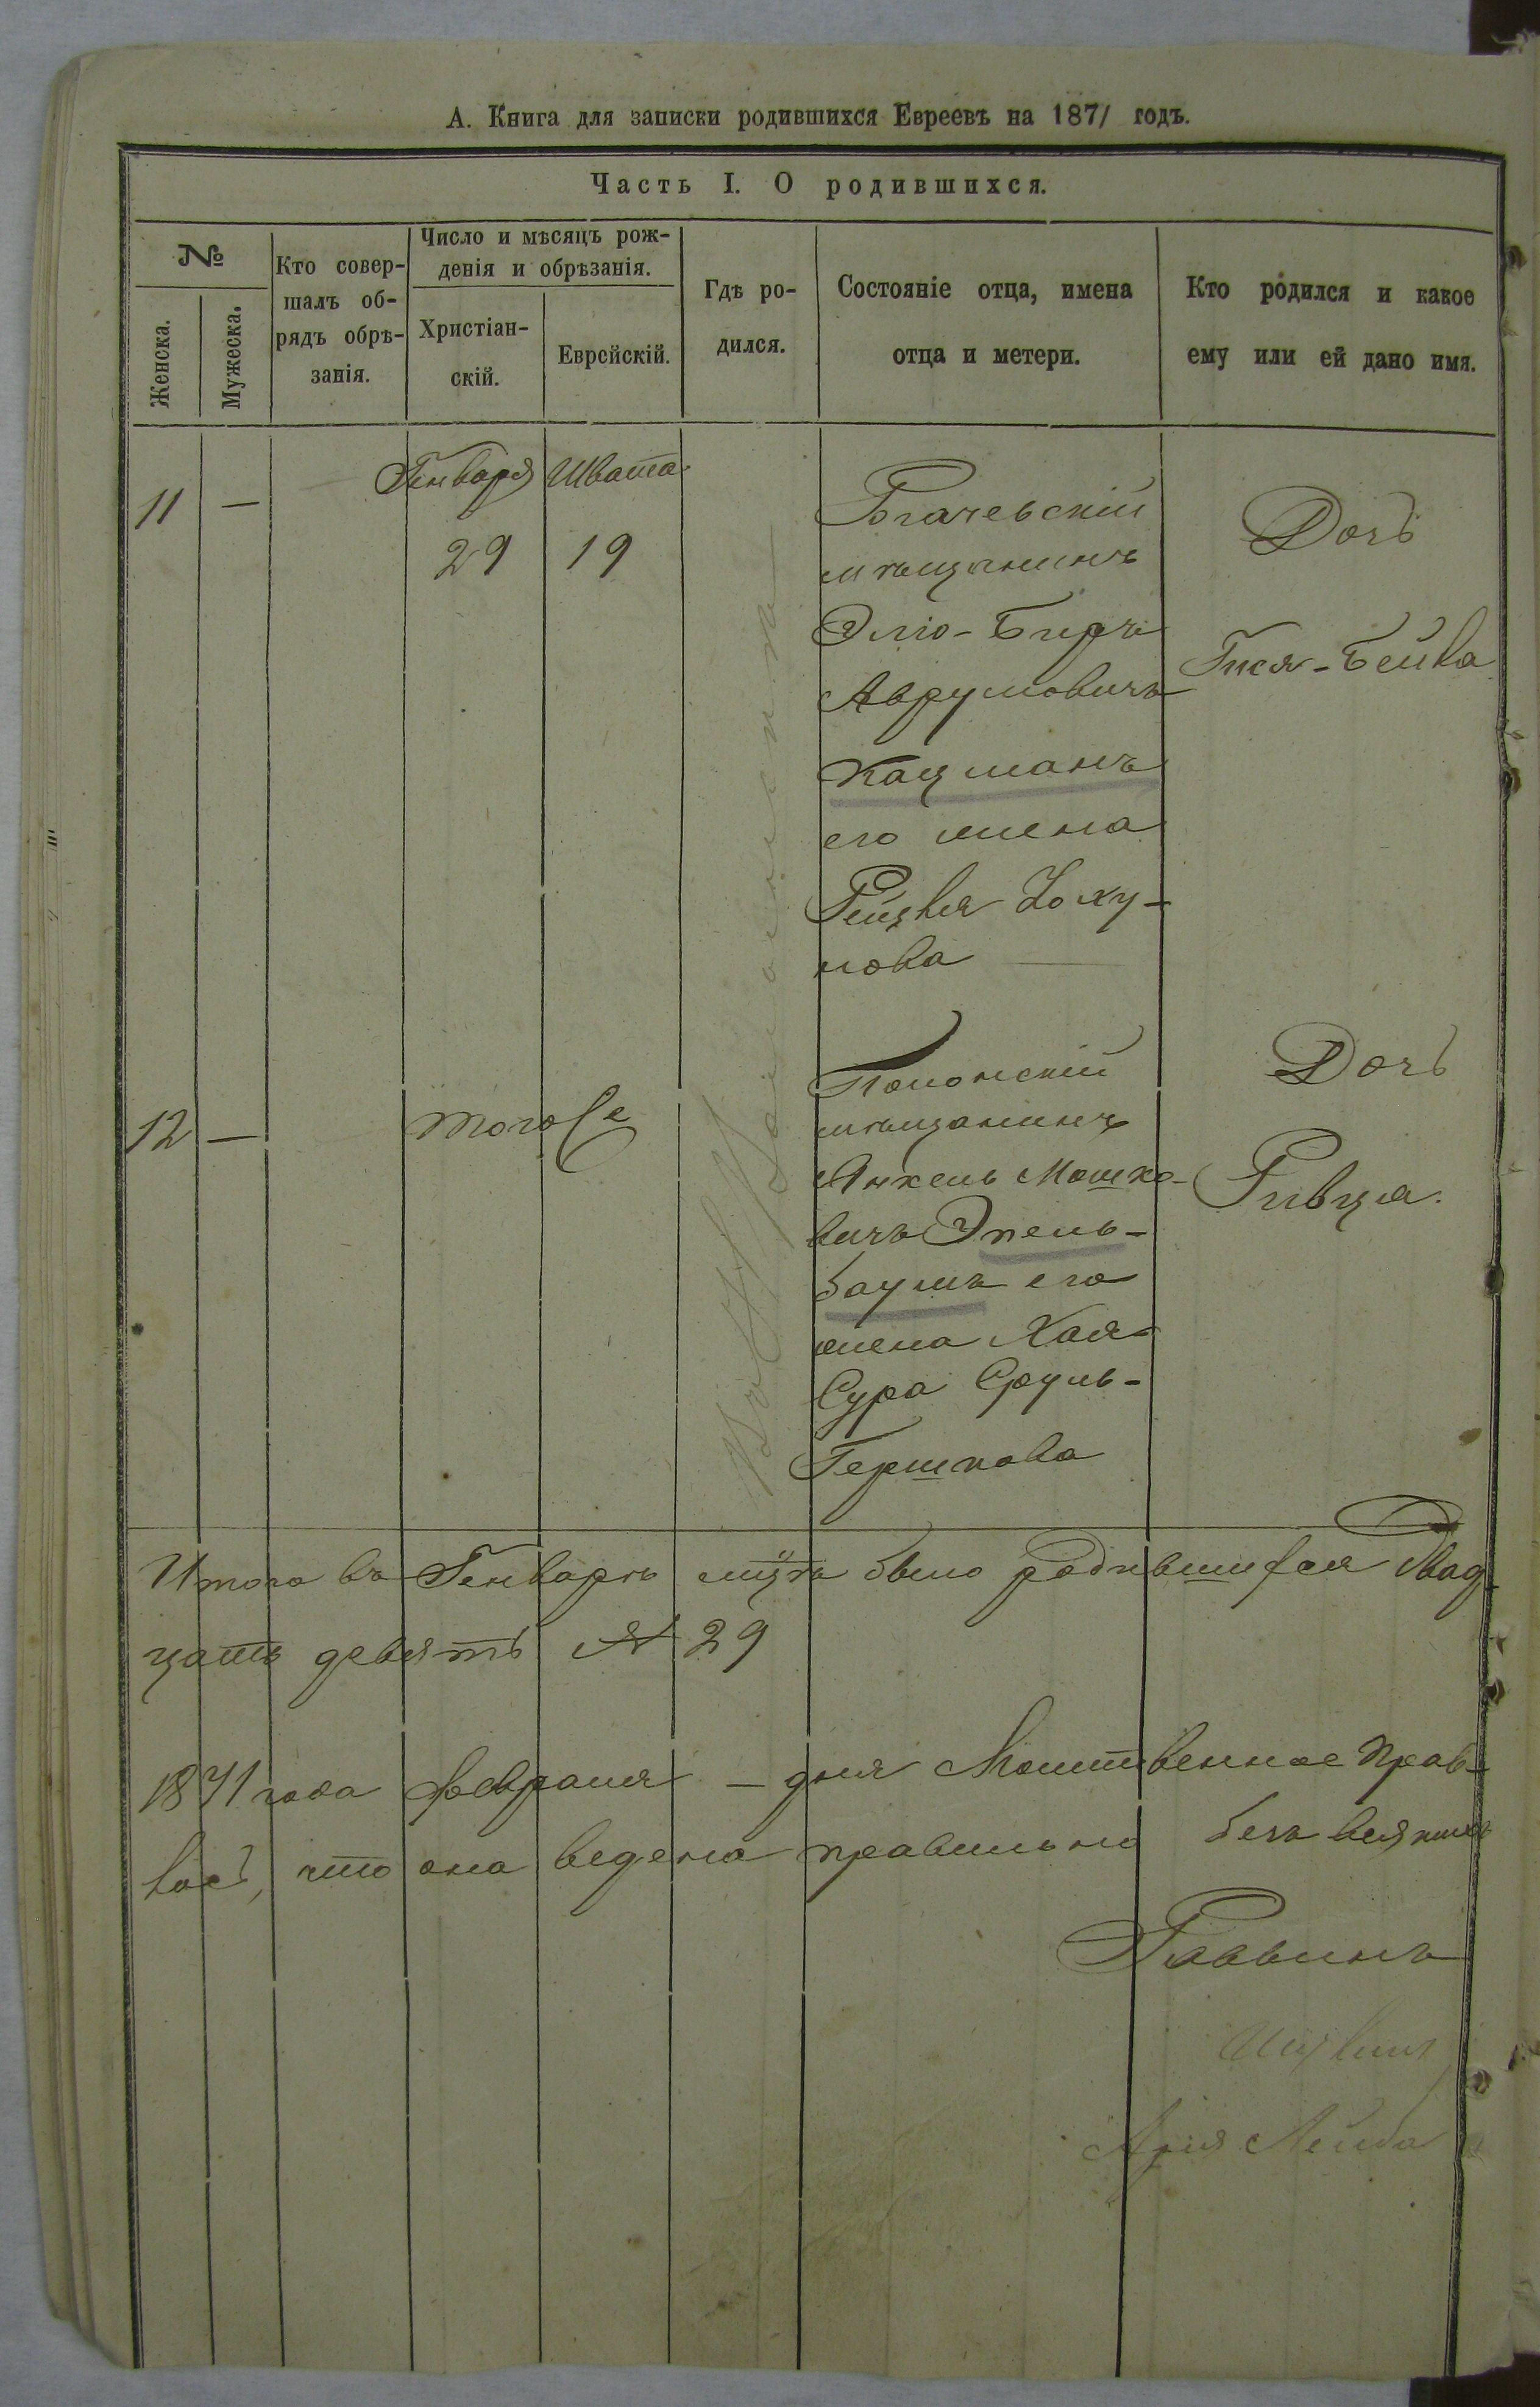 А. Книга для записки родившихся Евреевъ на 1871 годъ.
Часть I. О родившихся.
№
Женска.
Мужеска.
Кто совер-
шалъ об-
рядъ обрѣ-
занія.
Число и мѣсяцъ рож-
денія и обрѣзанія.
Христіан-
скій.
Еврейскій.
Гдѣ ро-
дился.
Состояніе отца, имена
отца и метери.
Кто родился и какое
ему или ей дано имя.
11 —
Генваря Швата
29 19
Рогачевскій
мѣщанинъ
Элio-Беръ
Аврумовичъ
Кацманъ
его жена
Рейзля
нова
Дочь
Гися-Бейла
12 —
Тогоже
Полонскій
мѣщанинъ
Янкель Мошко-
вичъ Эпель-
баумъ его
жена Хая-
Сура Сруль-
Гершкова
Дочь
Ривца.
Итого въ Генварѣ мцѣ было родившихся Двад-
цать девять № 29
1871 года Февраля — дня Молитвенное Прав-
вось, что она ведена правильно безъ всякихъ
Раввинъ
Арія Лейба